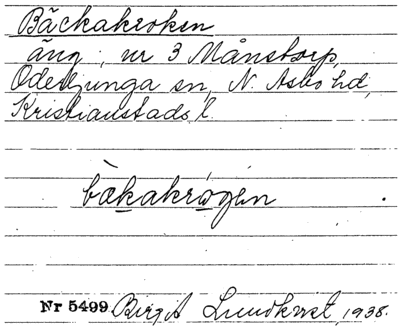 Bäckakroken
äng, nr 3 Månstorp,
Oderljunga sn, N. Åsbo hd,
Kristianstads l.
bækakrogen
Nr 5499 Birgit Lundkvist, 1938.